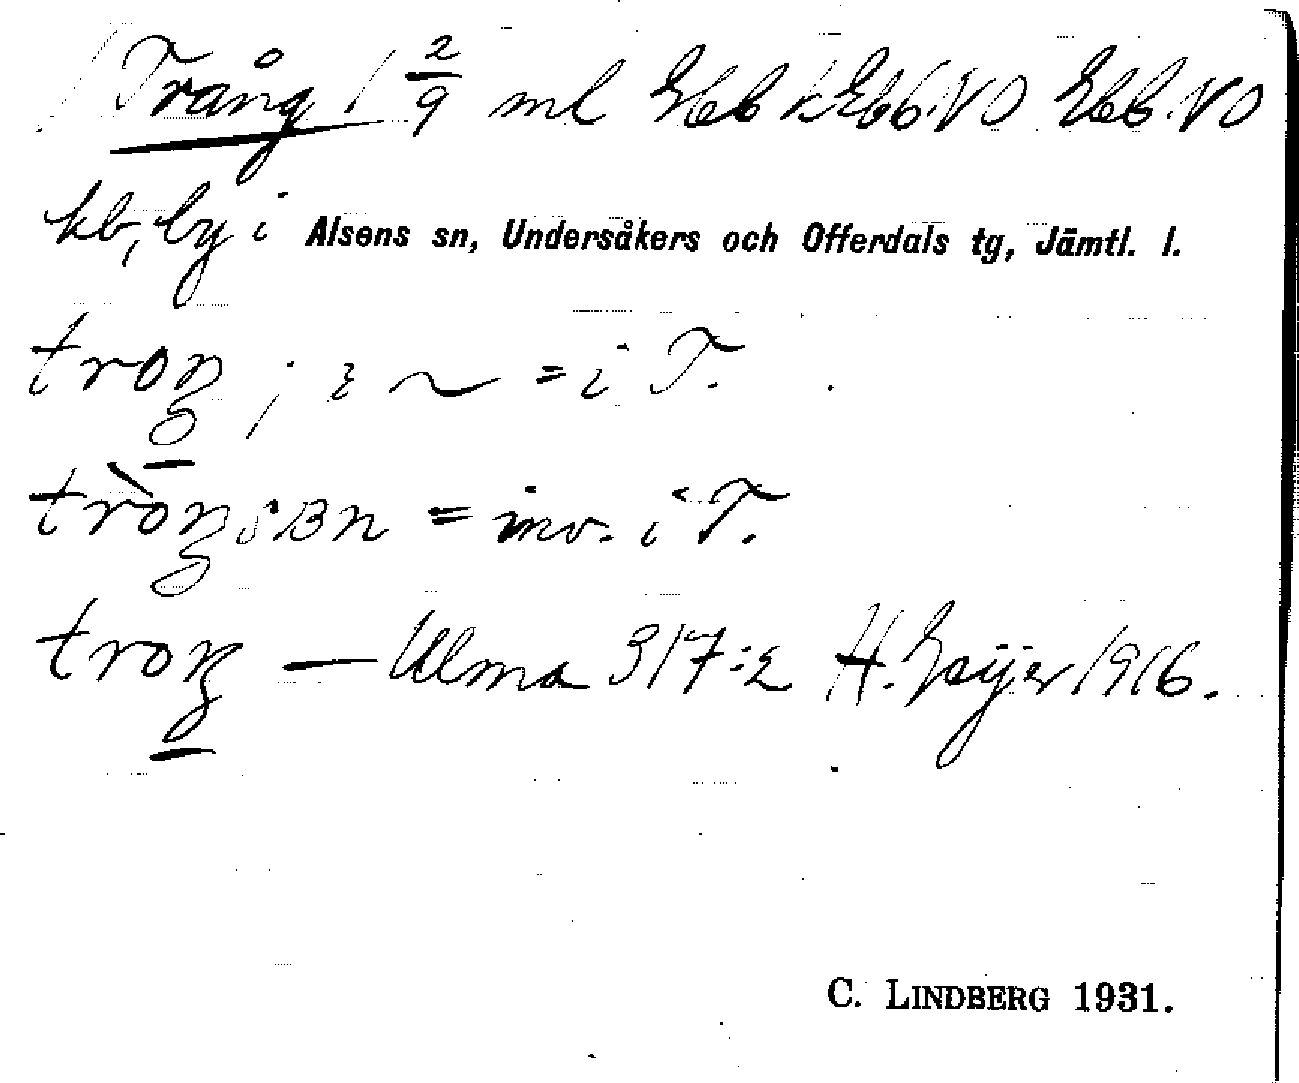 Trång 1 2/9 ml Ebb k Ebb.VO Ebb.VO
kb, by i Alsens sn, Undersåkers och Offerdals tg, Jämtl. l.
troŋ ; i ~ = i T.
tròŋsBn = inv. i T.
troŋ — Ulma 317:2 H. Geijer 1916.
C. LINDBERG 1931.